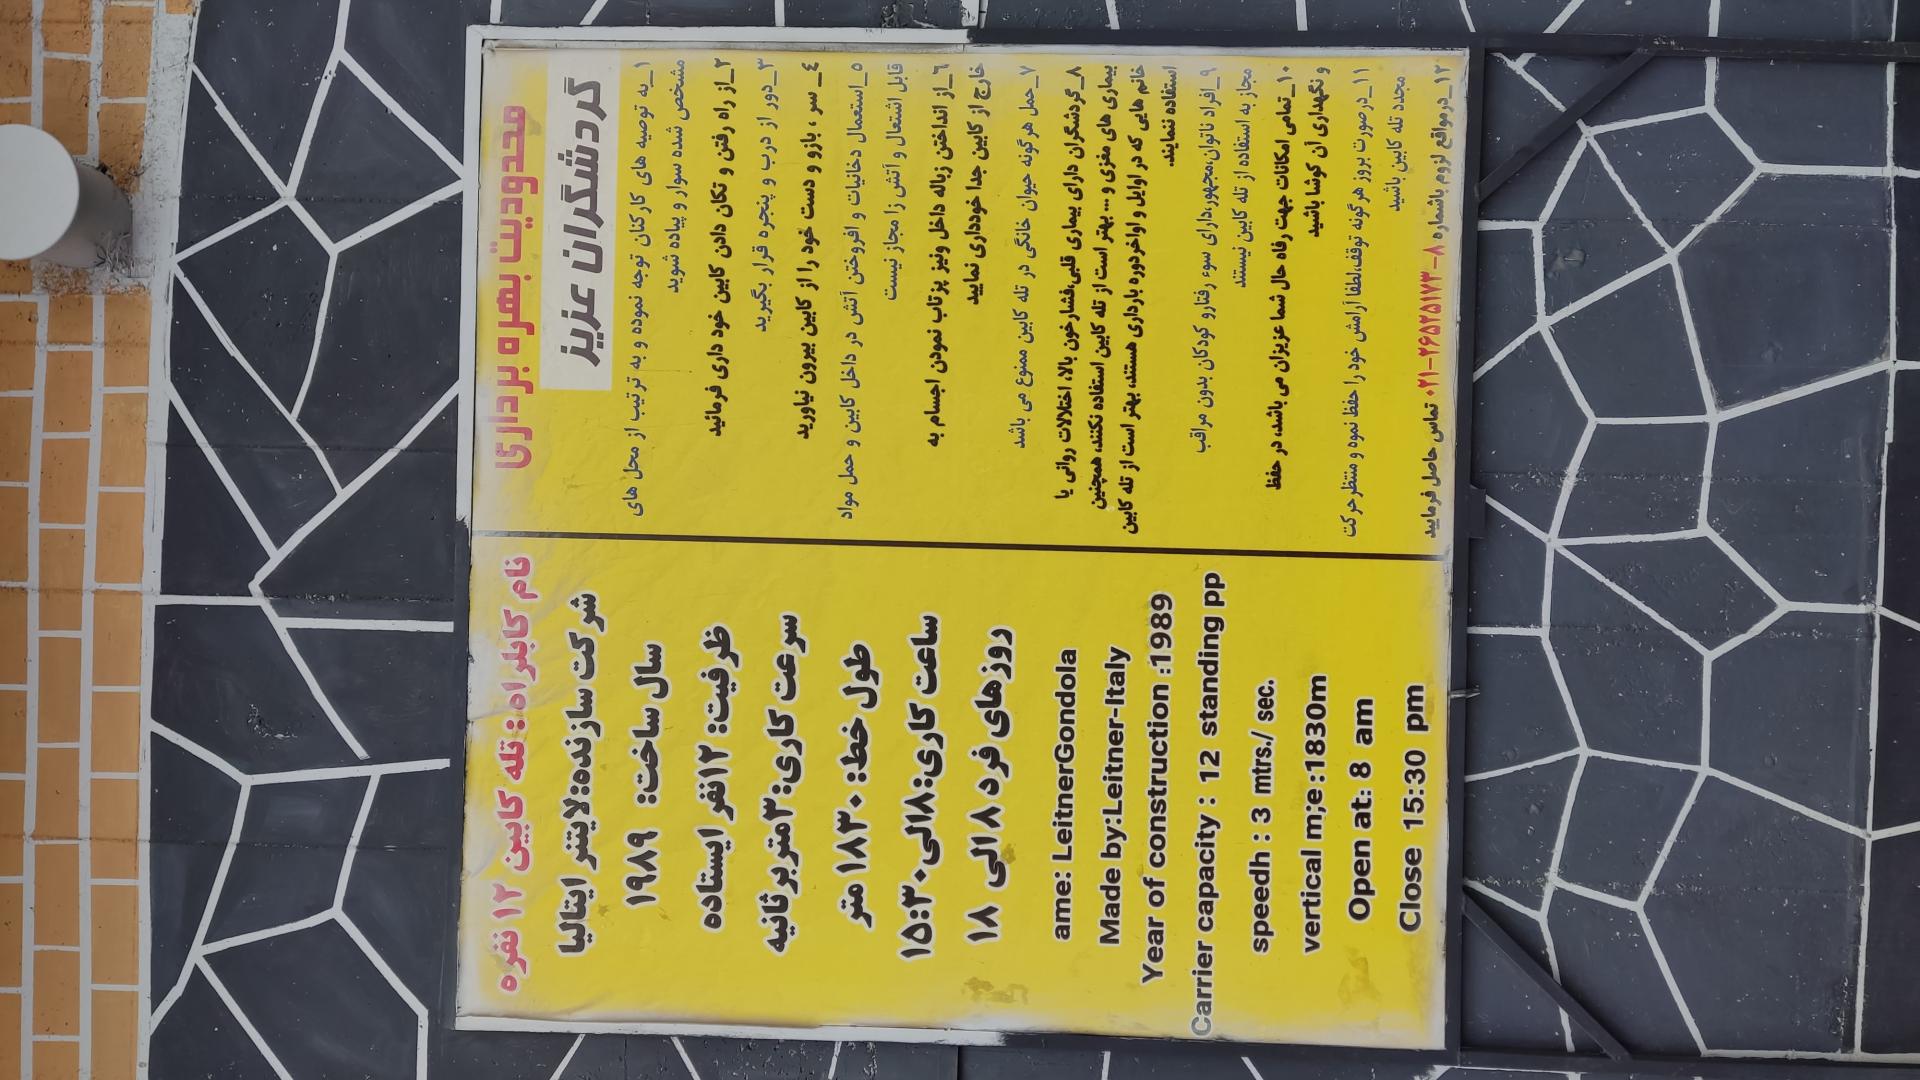 محدودیت بهره برداری
گردشگران عزیز
۱_به توصیه های کارکنان توجه نموده و به ترتیب از محل های
مشخص شده سوار و پیاده شوید
۲_از راه رفتن و تکان دادن کابین خود داری فرمائید
۳_دور از درب و پنجره قرار بگیرید
۴_ سر ، بازو و دست خود را از کابین بیرون نیاورید
۵_استعمال دخانیات و افروختن آتش در داخل کابین و حمل مواد
قابل اشتعال و آتش زا مجاز نیست
۶_از انداختن زباله داخل ونیز پرتاب نمودن اجسام به
خارج از کابین جدا خودداری نمایید
۷_حمل هرگونه حیوان خانگی در تله کابین ممنوع می باشد
۸_گردشگران دارای بیماری قلبی،فشارخون بالا، اختلالات روانی یا
بیماری های مغزی و... بهتر است از تله کابین استفاده نکنند، همچنین
خانم هایی که در اوایل و اواخردوره بارداری هستند، بهتر است از تله کابین
استفاده ننمایند.
۹_افراد ناتوان،مجهور،دارای سوء رفتارو کودکان بدون مراقب
مجاز به استفاده از تله کابین نیستند
۱۰_تمامی امکانات جهت رفاه حال شما عزیزان می باشد، در حفظ
و نگهداری آن کوشا باشید
۱۱_درصورت بروز هرگونه توقف،لطفا آرامش خود را حفظ نموه و منتظرحرکت
مجدد تله کابین باشید
۱۲_درمواقع لزوم باشماره ۸-۰۲۱-۲۶۵۲۵۱۷۳ تماس حاصل فرمایید
نام کابلراه: تله کابین ۱۲ نفره
شرکت سازنده:لایتنر ایتالیا
سال ساخت: ۱۹۸۹
ظرفیت: ۱۲نفر ایستاده
سرعت کاری: ۳متربرثانیه
طول خط: ۱۸۳۰ متر
ساعت کاری:۸الی۱۵:۳۰
روزهای فرد ۸ الی ۱۸
ame: LeitnerGondola
Made by:Leitner-Italy
Year of construction :1989
Carrier capacity : 12 standing pp
speedh : 3 mtrs./ sec.
vertical m;e:1830m
Open at: 8 am
Close 15:30 pm